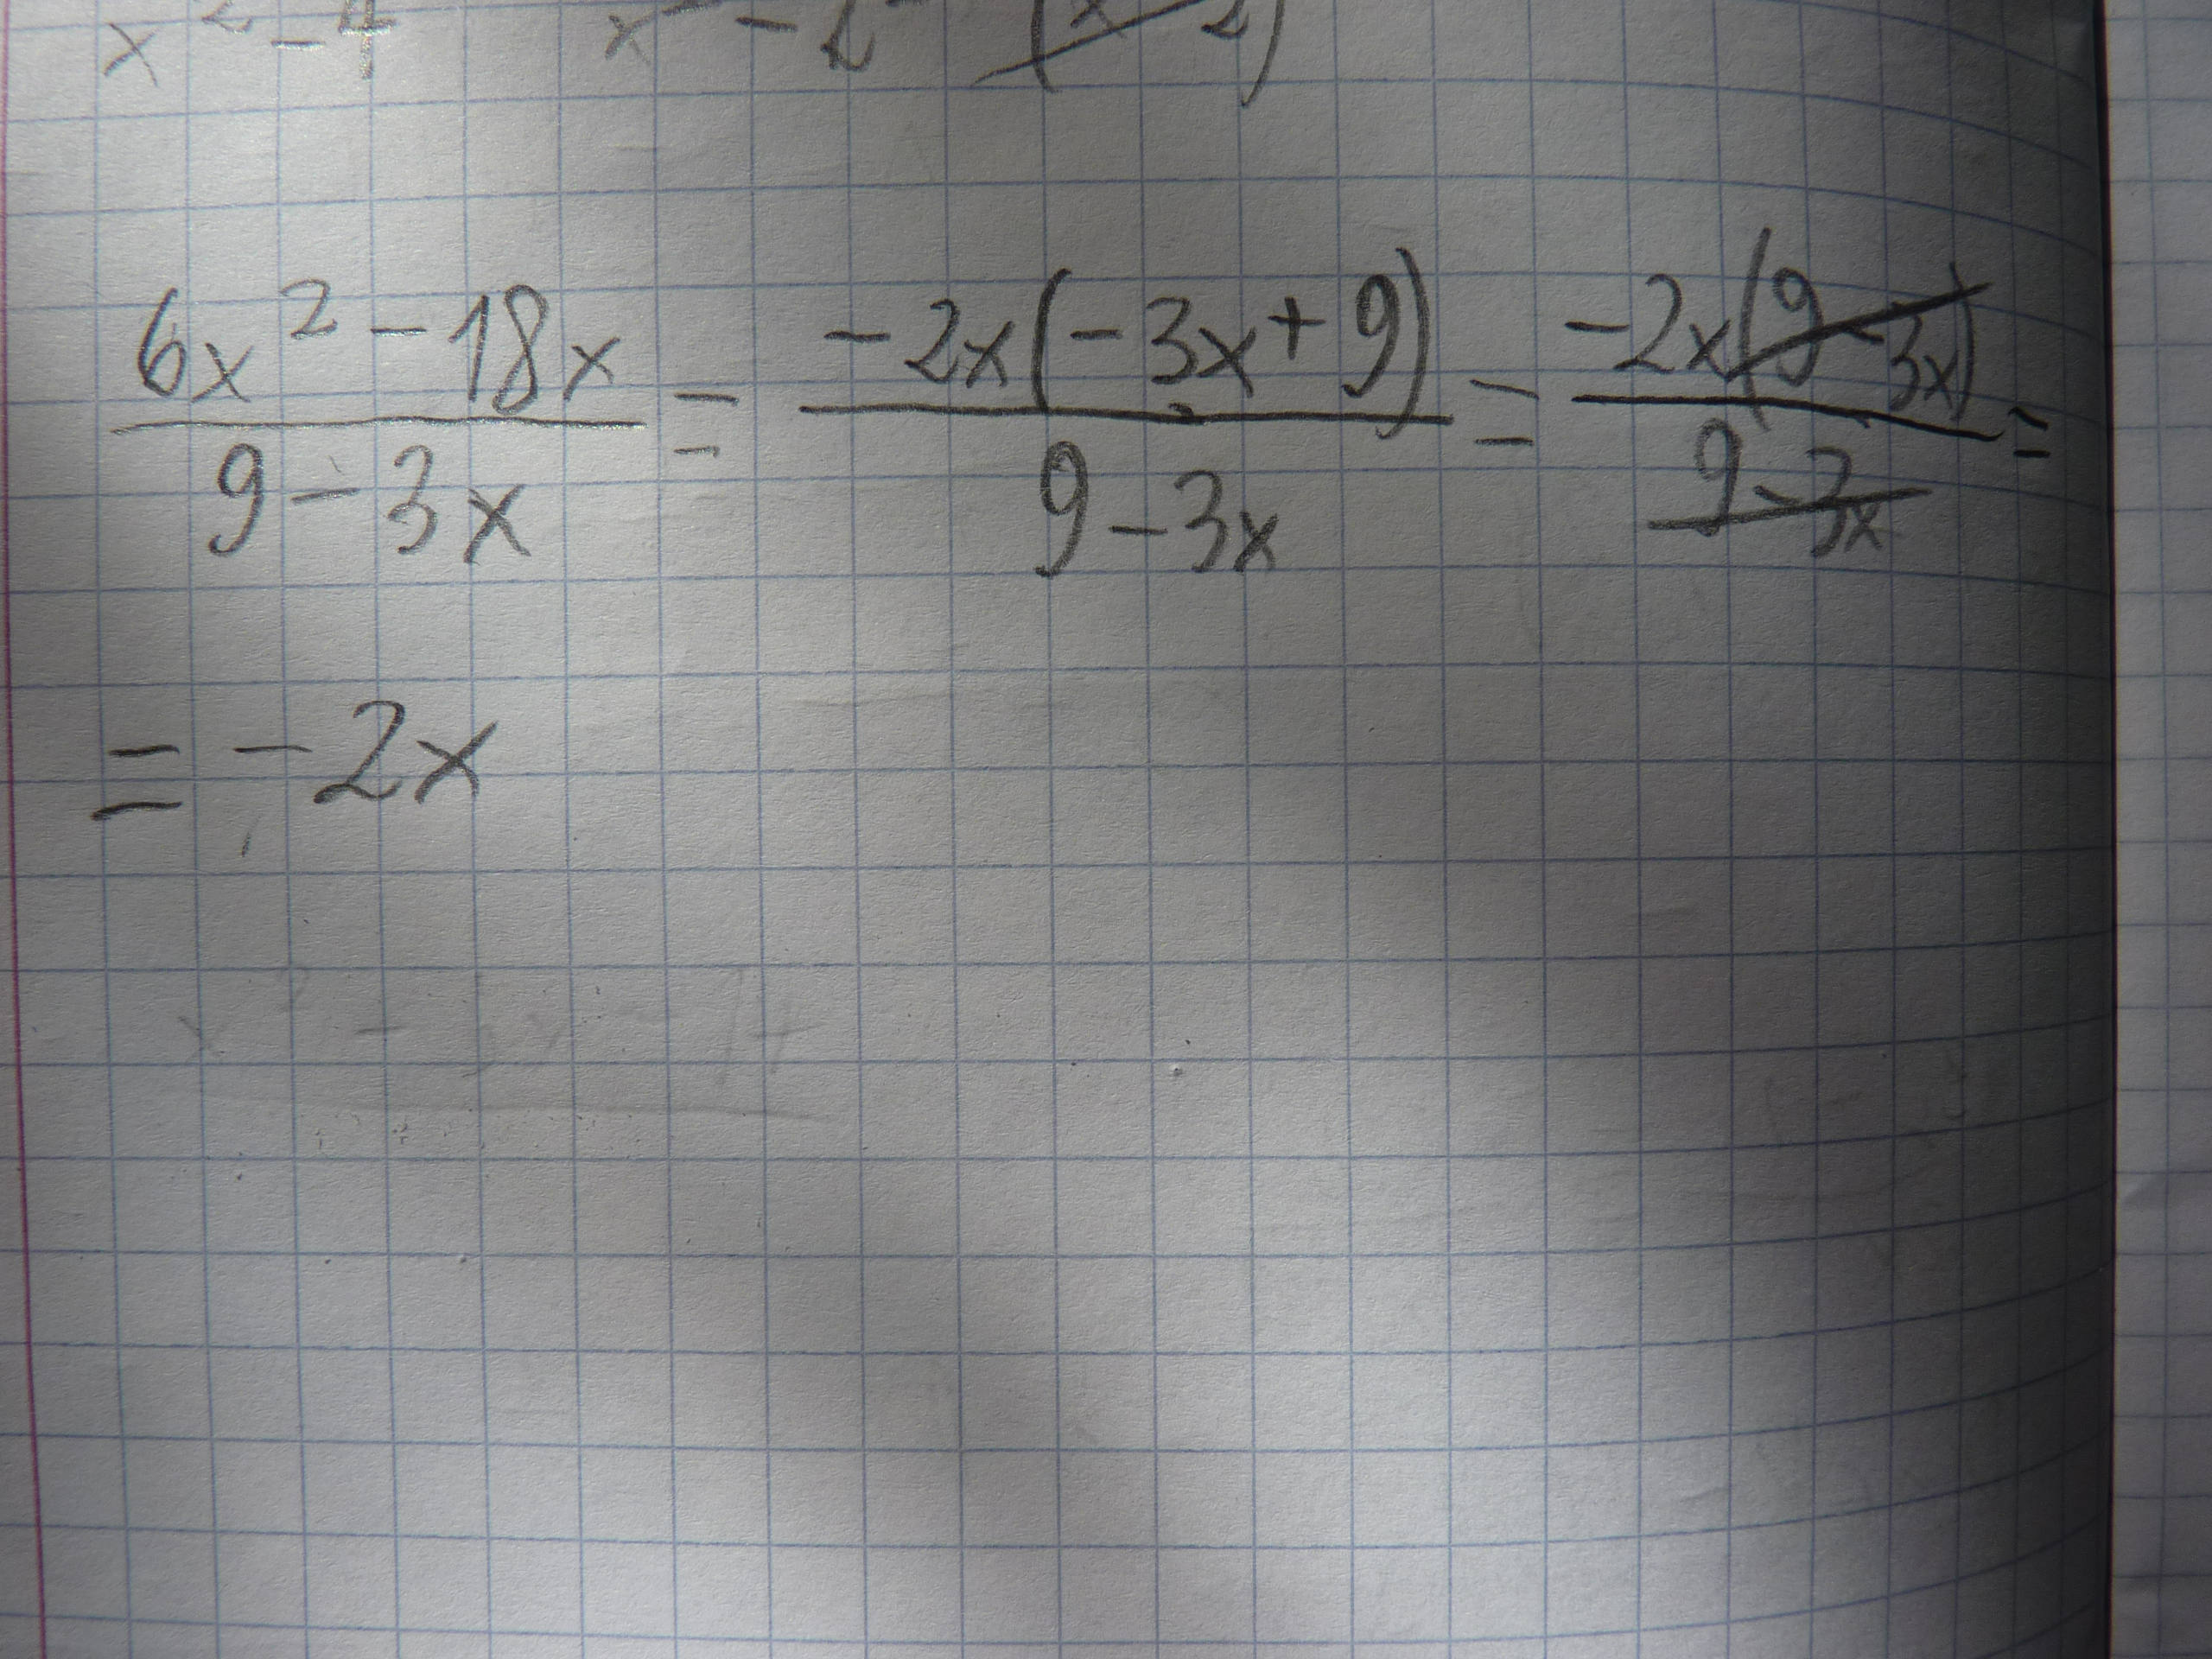 x² - 4 x² - 2² (x - 2)
6x² - 18x / 9 - 3x = -2x(-3x + 9) / 9 - 3x = -2x(9 - 3x) / 9 - 3x =
= -2x